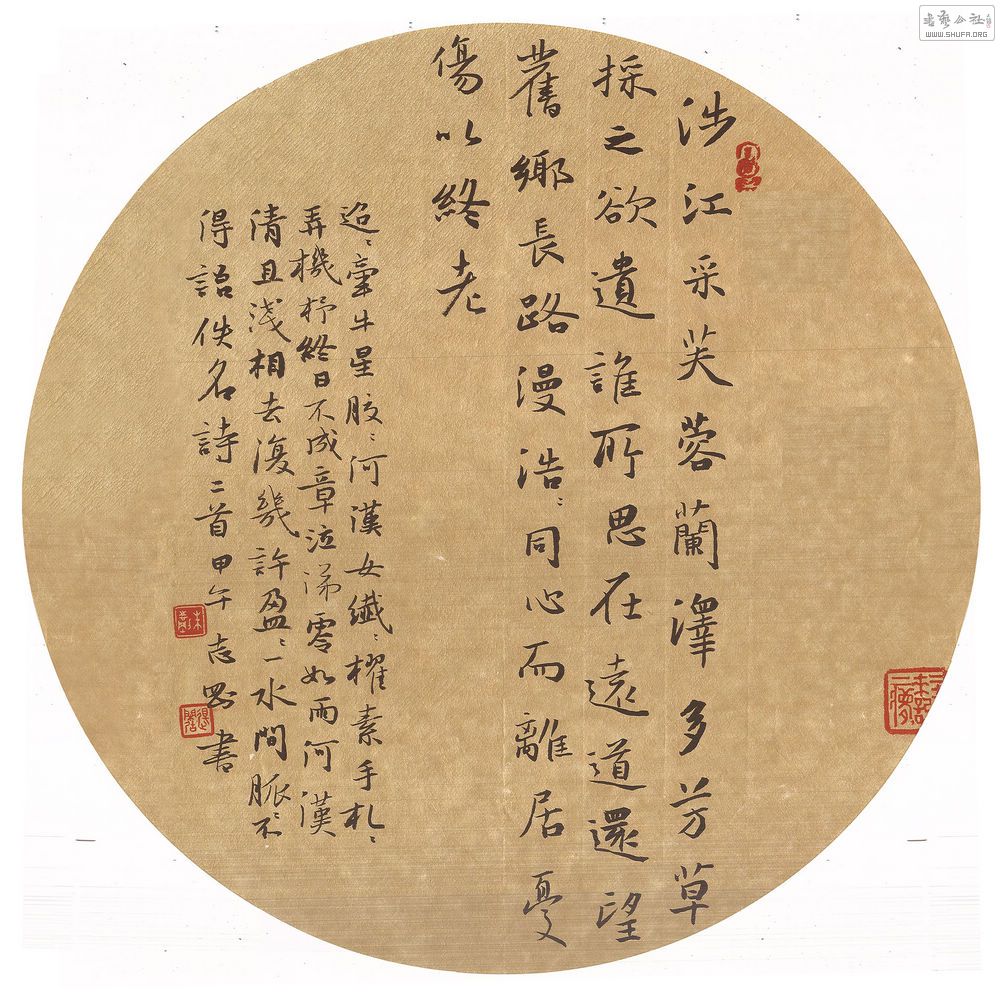 涉江采芙蓉蘭澤多芳草
採之欲遺誰所思在遠道還望
舊鄉長路漫浩〻同心而離居憂
傷以終老
迢〻牽牛星皎〻河漢女纖〻櫂素手札〻
弄機杼終日不成章泣涕零如雨河漢
清且淺相去復幾許盈〻一水間脈〻不
得語佚名詩二首甲午志書
書藝公社
WWW.SHUFA.ORG